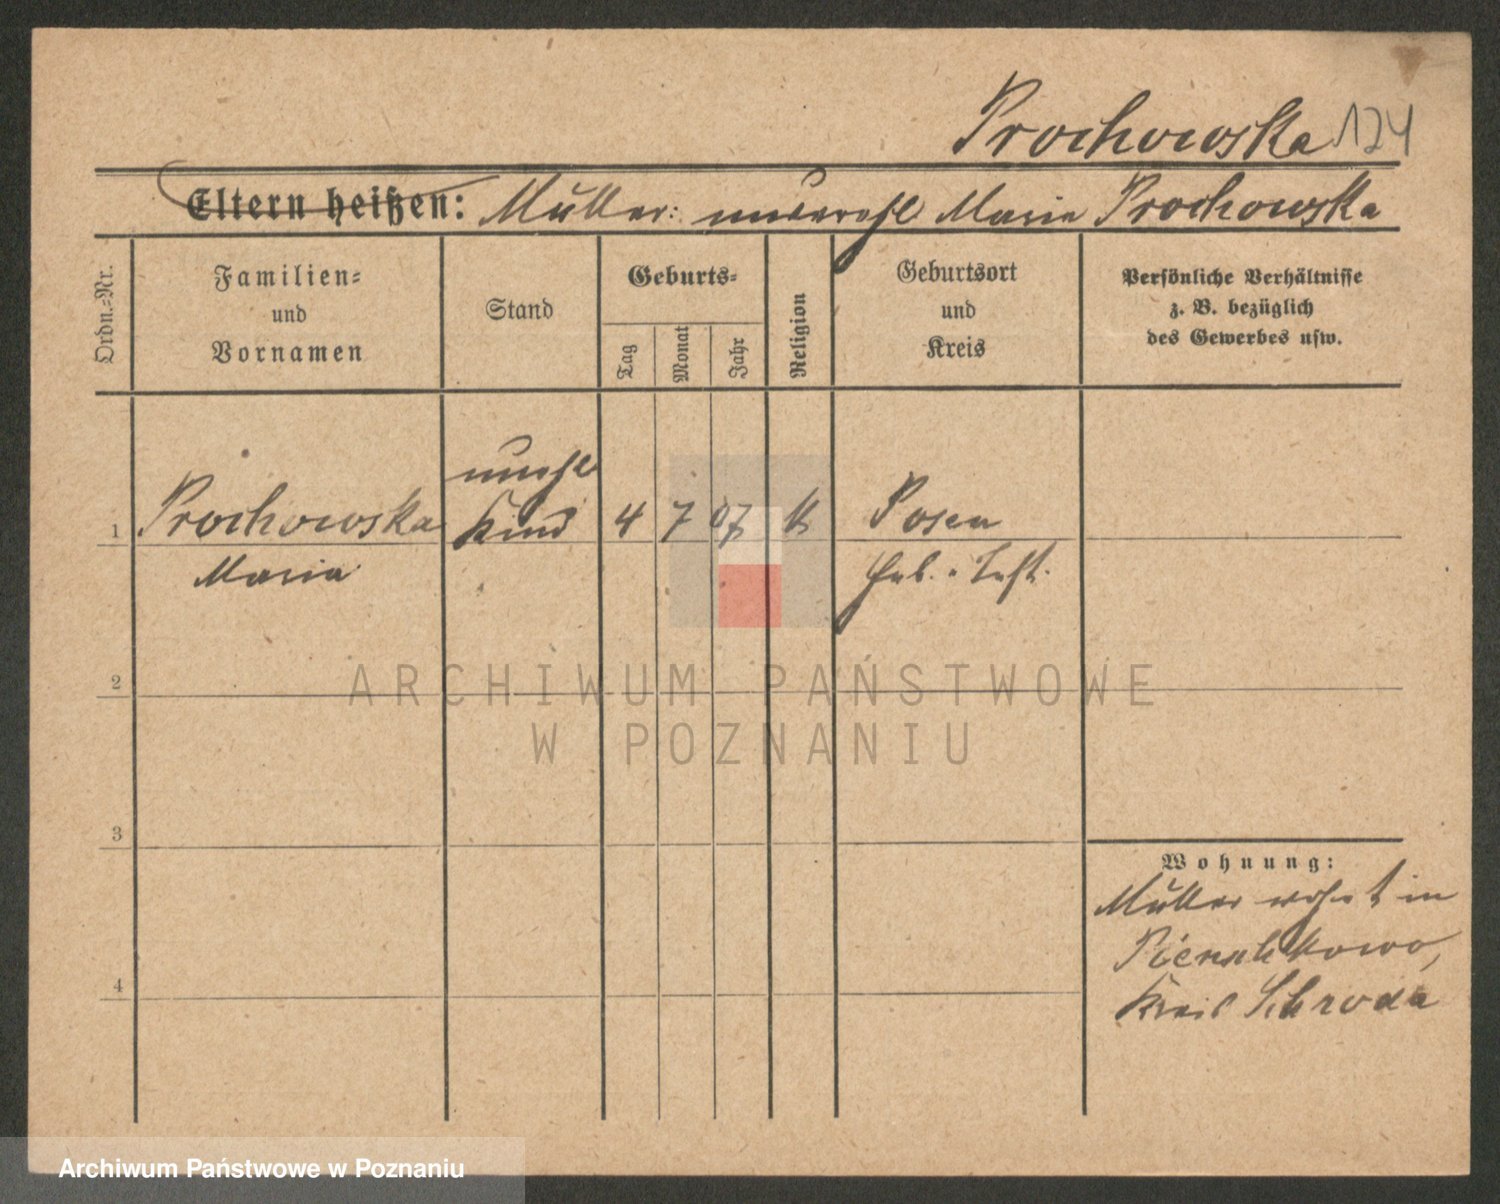 Prochowska 124
Eltern heißen: Mutter: unverehl Marie Prochowska
Ordn.-Nr.
Familien-
und
Vornamen
Stand
Geburts-
Tag
Monat
Jahr
Religion
Geburtsort
und
Kreis
Persönliche Verhältnisse
z. B. bezüglich
des Gewerbes usw.
unehl
1 Prochowska Kind 4 7 07 k Posen
Maria
2
3
4
Wohnung:
Mutter wohnt in
Kreis Schroda
ARCHIWUM PAŃSTWOWE
W POZNANIU
Archiwum Państwowe w Poznaniu